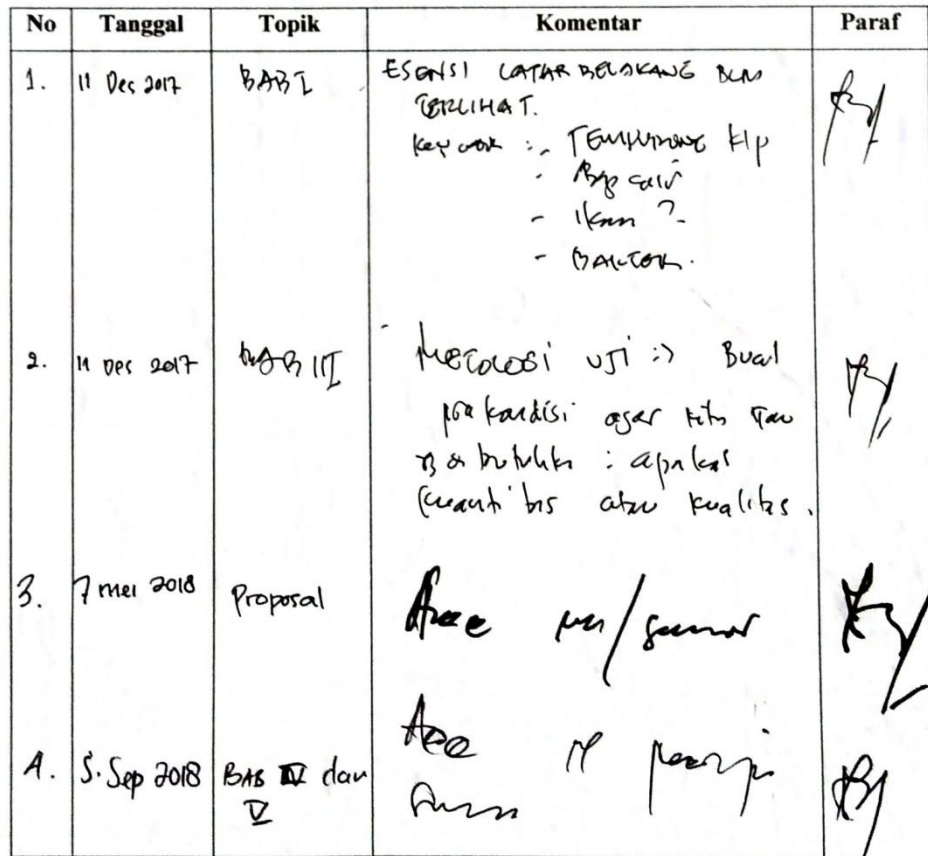 No Tanggal Topik Komentar Paraf
1. 11 Des 2017 BAB I ESENSI LATAR BELAKANG BLM
TERLIHAT.
Key word : - TEMPURUNG klp
- Asap cair
- Ikan ?
- BAKTERI.
2. 11 Des 2017 BAB III Metodologi uji => Buat
pra kondisi agar kita tau
: apakah
kuantitas atau kualitas.
3. 7 mei 2018 Proposal Acc
4. 5. Sep 2018 BAB IV dan Acc
V